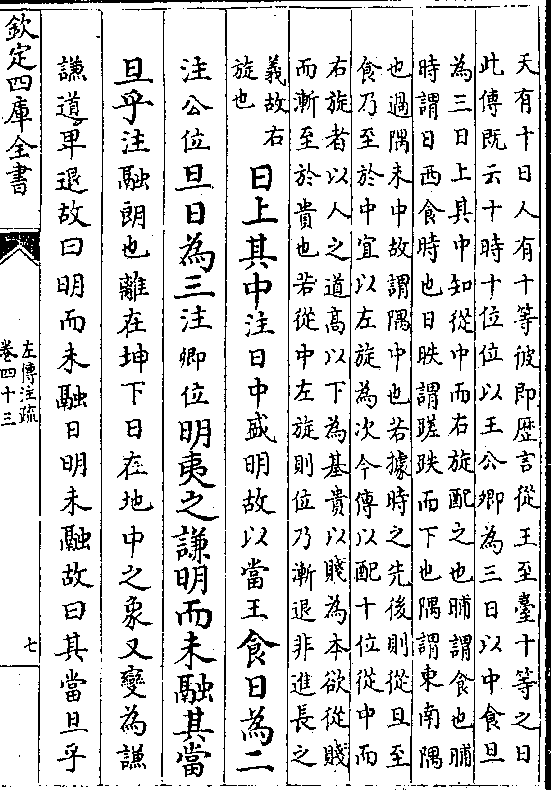 天有十日人有十等彼即歴言從王至臺十等之日
此傳既云十時十位位以王公卿為三日以中食旦
為三日上其中知從中而右旋配之也晡謂食也晡
時謂日西食時也日昳謂蹉跌而下也隅謂東南隅
也過隅未中故謂隅中也若據時之先後則從旦至
食乃至於中宜以左旋為次今傳以配十位從中而
右旋者以人之道髙以下為基貴以賤為本欲從賤
而漸至於貴也若從中左旋則位乃漸退非進長之
義故右
旋也
日上其中注日中盛明故以當王食日為二
注公位旦日為三注卿位明夷之謙明而未融其當
旦乎注融朗也離在坤下日在地中之象又變為謙
謙道卑退故曰明而未融日明未融故曰其當旦乎
欽定四庫全書
左傳注疏
卷四十三
七